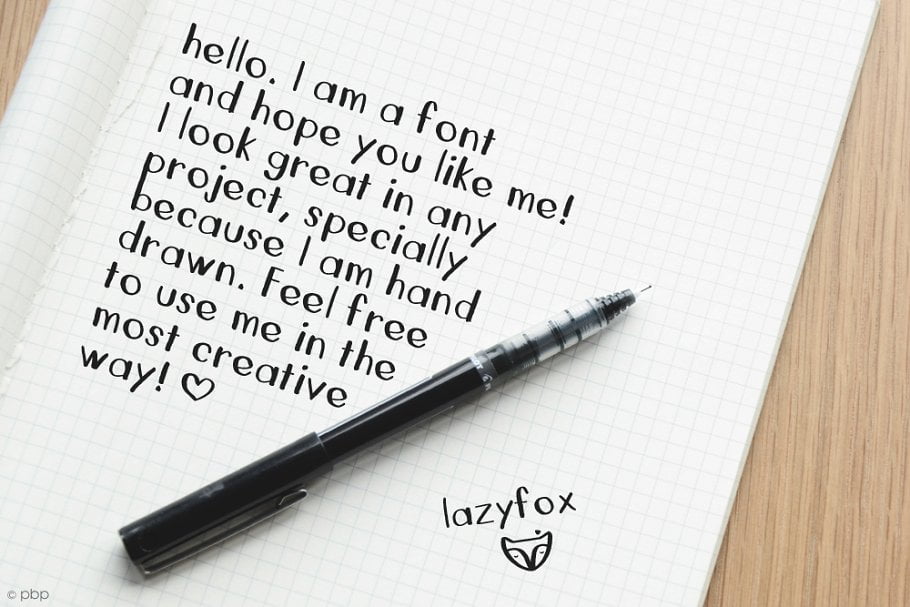 hello. I am a font
and hope you like me!
I look great in any
project, specially
because I am hand
drawn. Feel free
to use me in the
most creative
way! ♡
lazyfox
© pbp